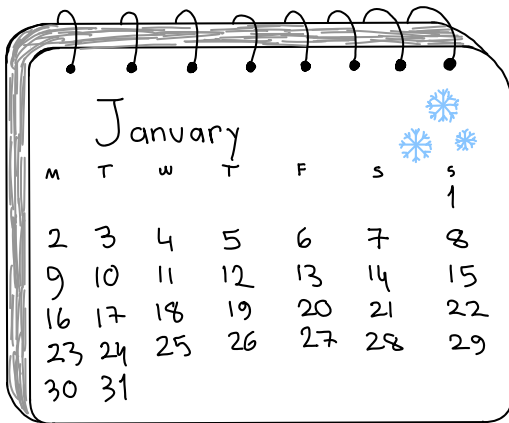 January
M T W T F S S
1
2 3 4 5 6 7 8
9 10 11 12 13 14 15
16 17 18 19 20 21 22
23 24 25 26 27 28 29
30 31